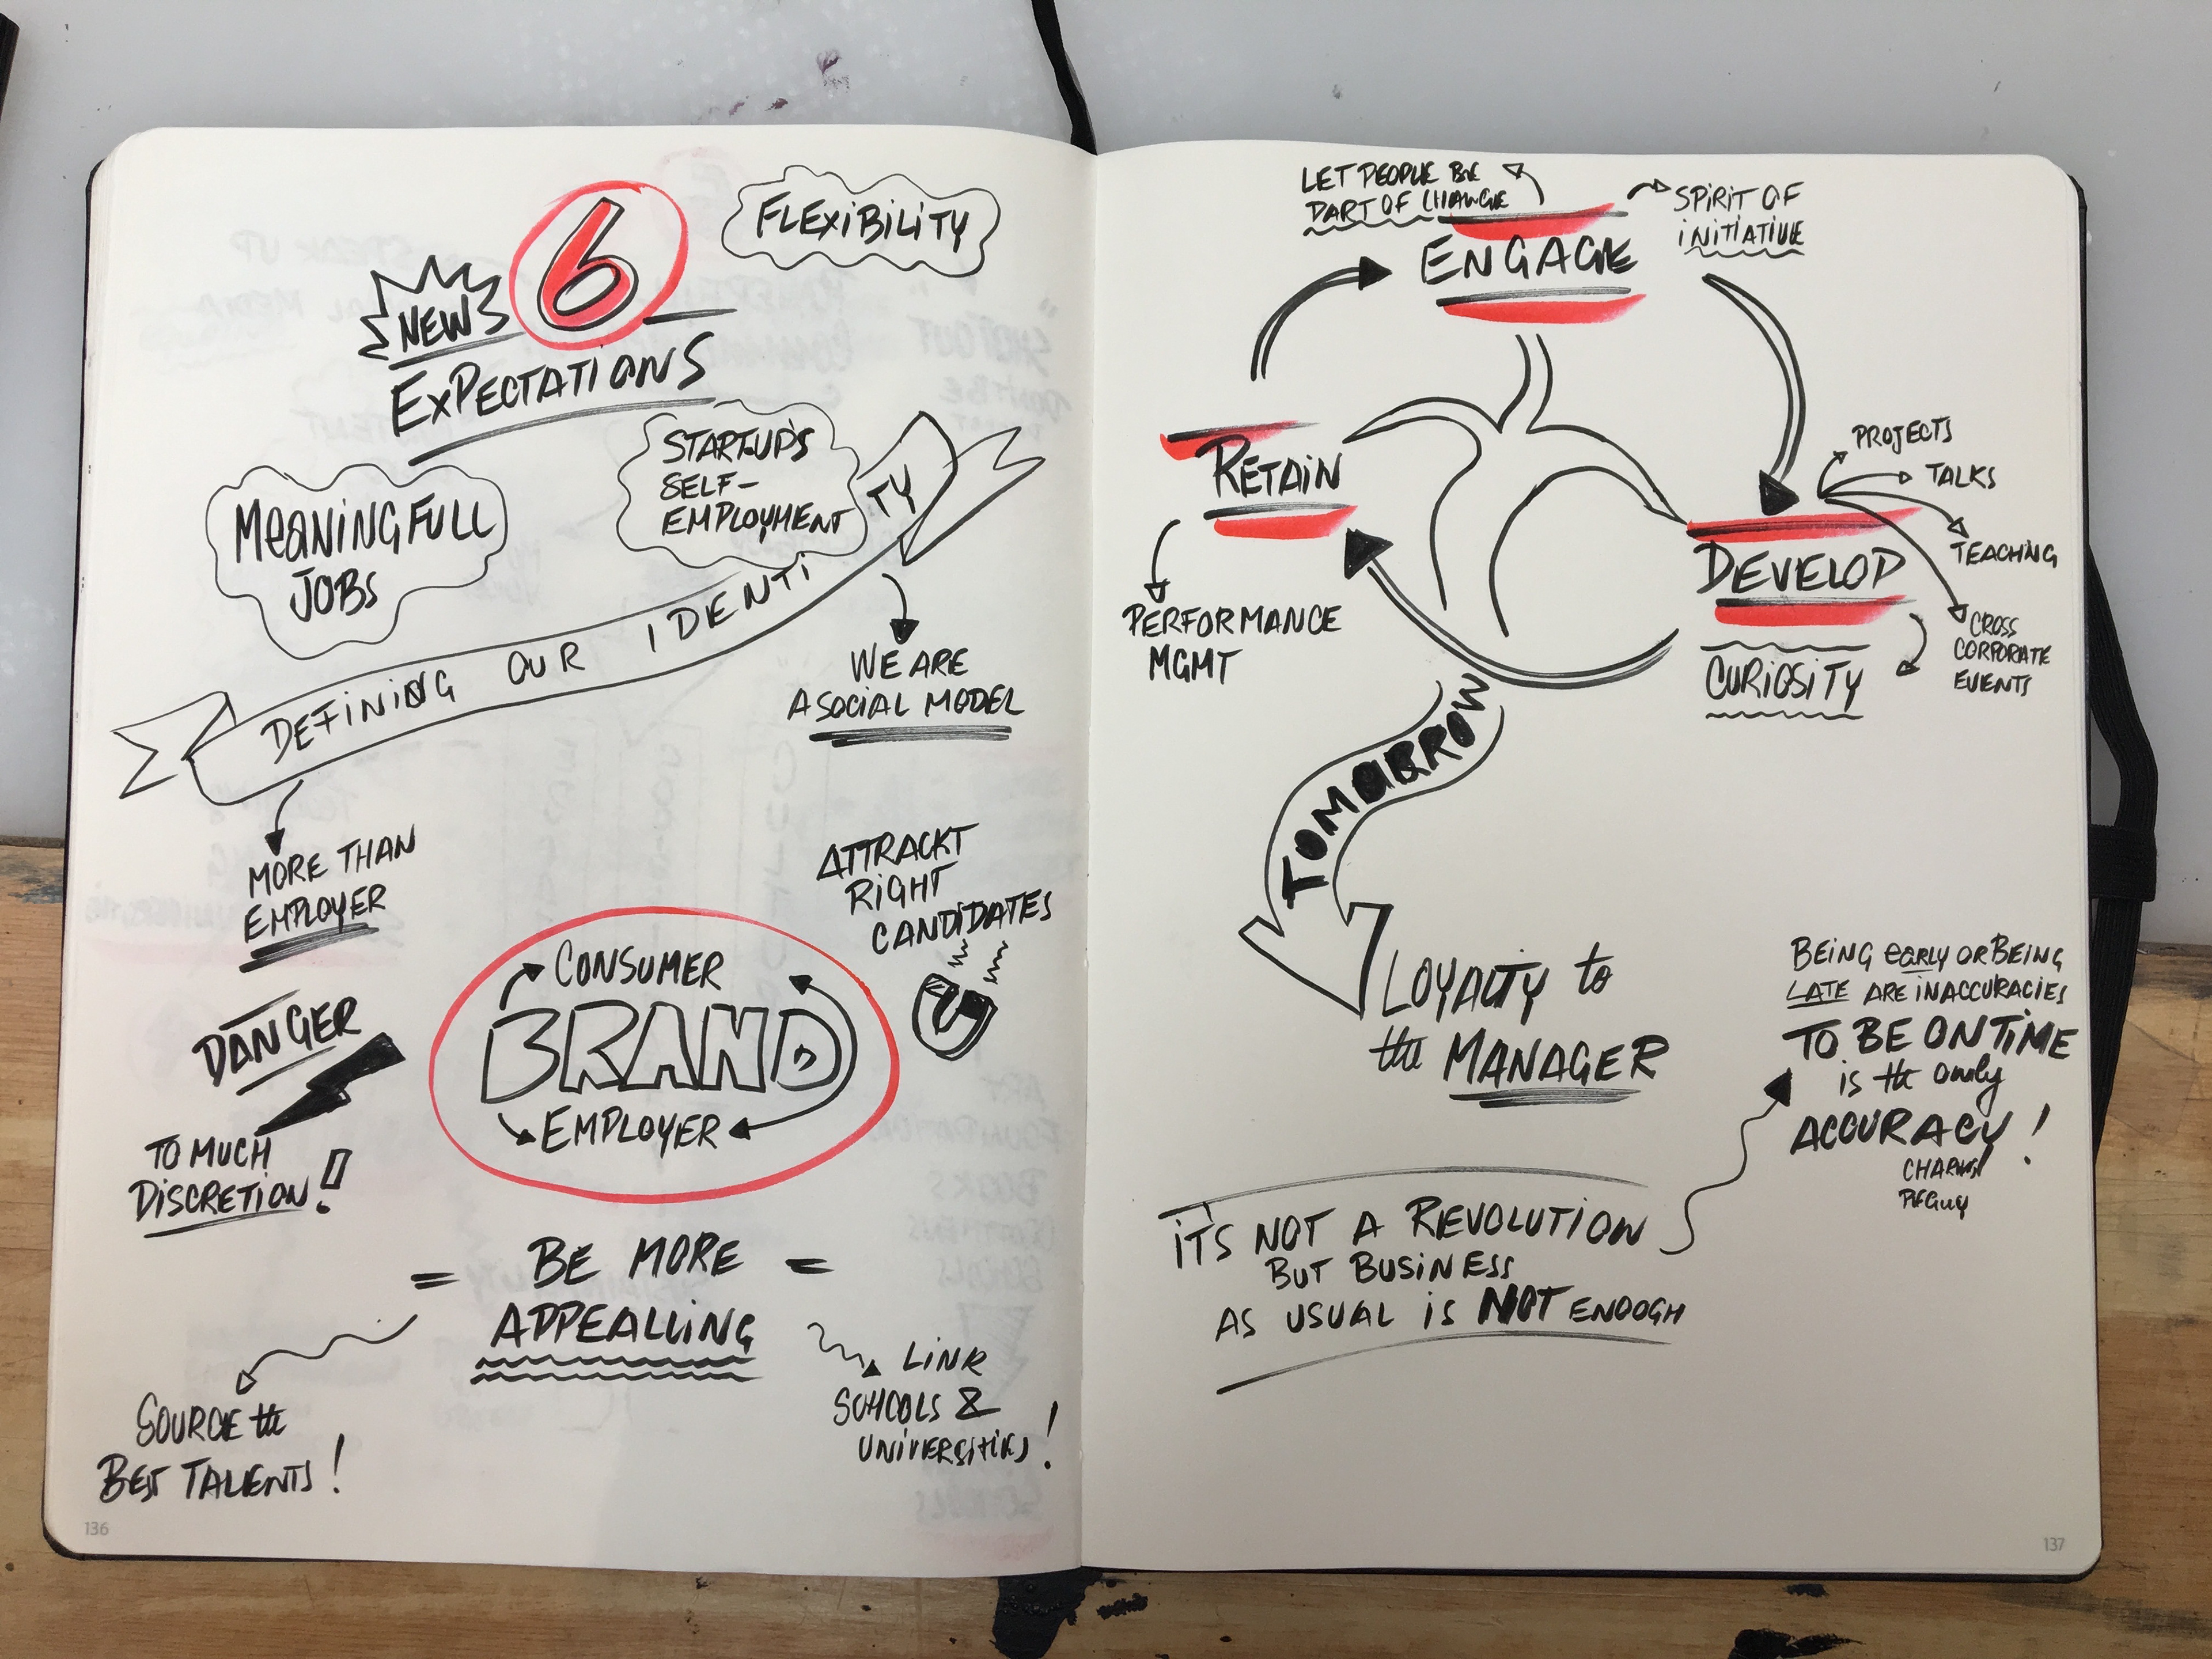 6
FLEXIBILITY
NEW
EXPECTATIONS
MEANINGFULL
JOBS
START-UP'S
SELF-
EMPLOYMENT
DEFINING OUR IDENTITY
WE ARE
A SOCIAL MODEL
MORE THAN
EMPLOYER
DANGER
TO MUCH
DISCRETION!
ATTRACKT
RIGHT
CANDIDATES
CONSUMER
BRAND
EMPLOYER
= BE MORE =
APPEALLING
SOURCE the
BEST TALENTS!
LINK
SCHOOLS &
UNIVERSITIES!
136
LET PEOPLE BE
PART OF CHANGE
SPIRIT OF
INITIATIVE
ENGAGE
RETAIN
PERFORMANCE
MGMT
PROJECTS
TALKS
TEACHING
CROSS
CORPORATE
EVENTS
DEVELOP
CURIOSITY
TOMORROW
LOYALTY to
the MANAGER
BEING EARLY OR BEING
LATE ARE INACCURACIES
TO BE ON TIME
is the only
ACCURACY!
CHARLES
PEGUY
IT'S NOT A REVOLUTION
BUT BUSINESS
AS USUAL IS NOT ENOOGH
137